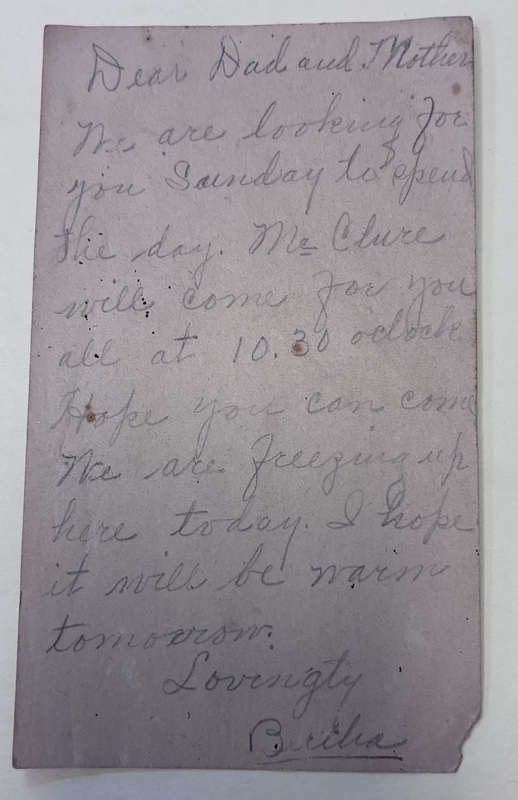 Dear Dad and Mother
We are looking for
you Sunday to spend
the day. Mc Clure
will come for you
all at 10.30 oclock
Hope you can come
We are freezing up
here today. I hope
it will be warm
tomorrow.
Lovingly